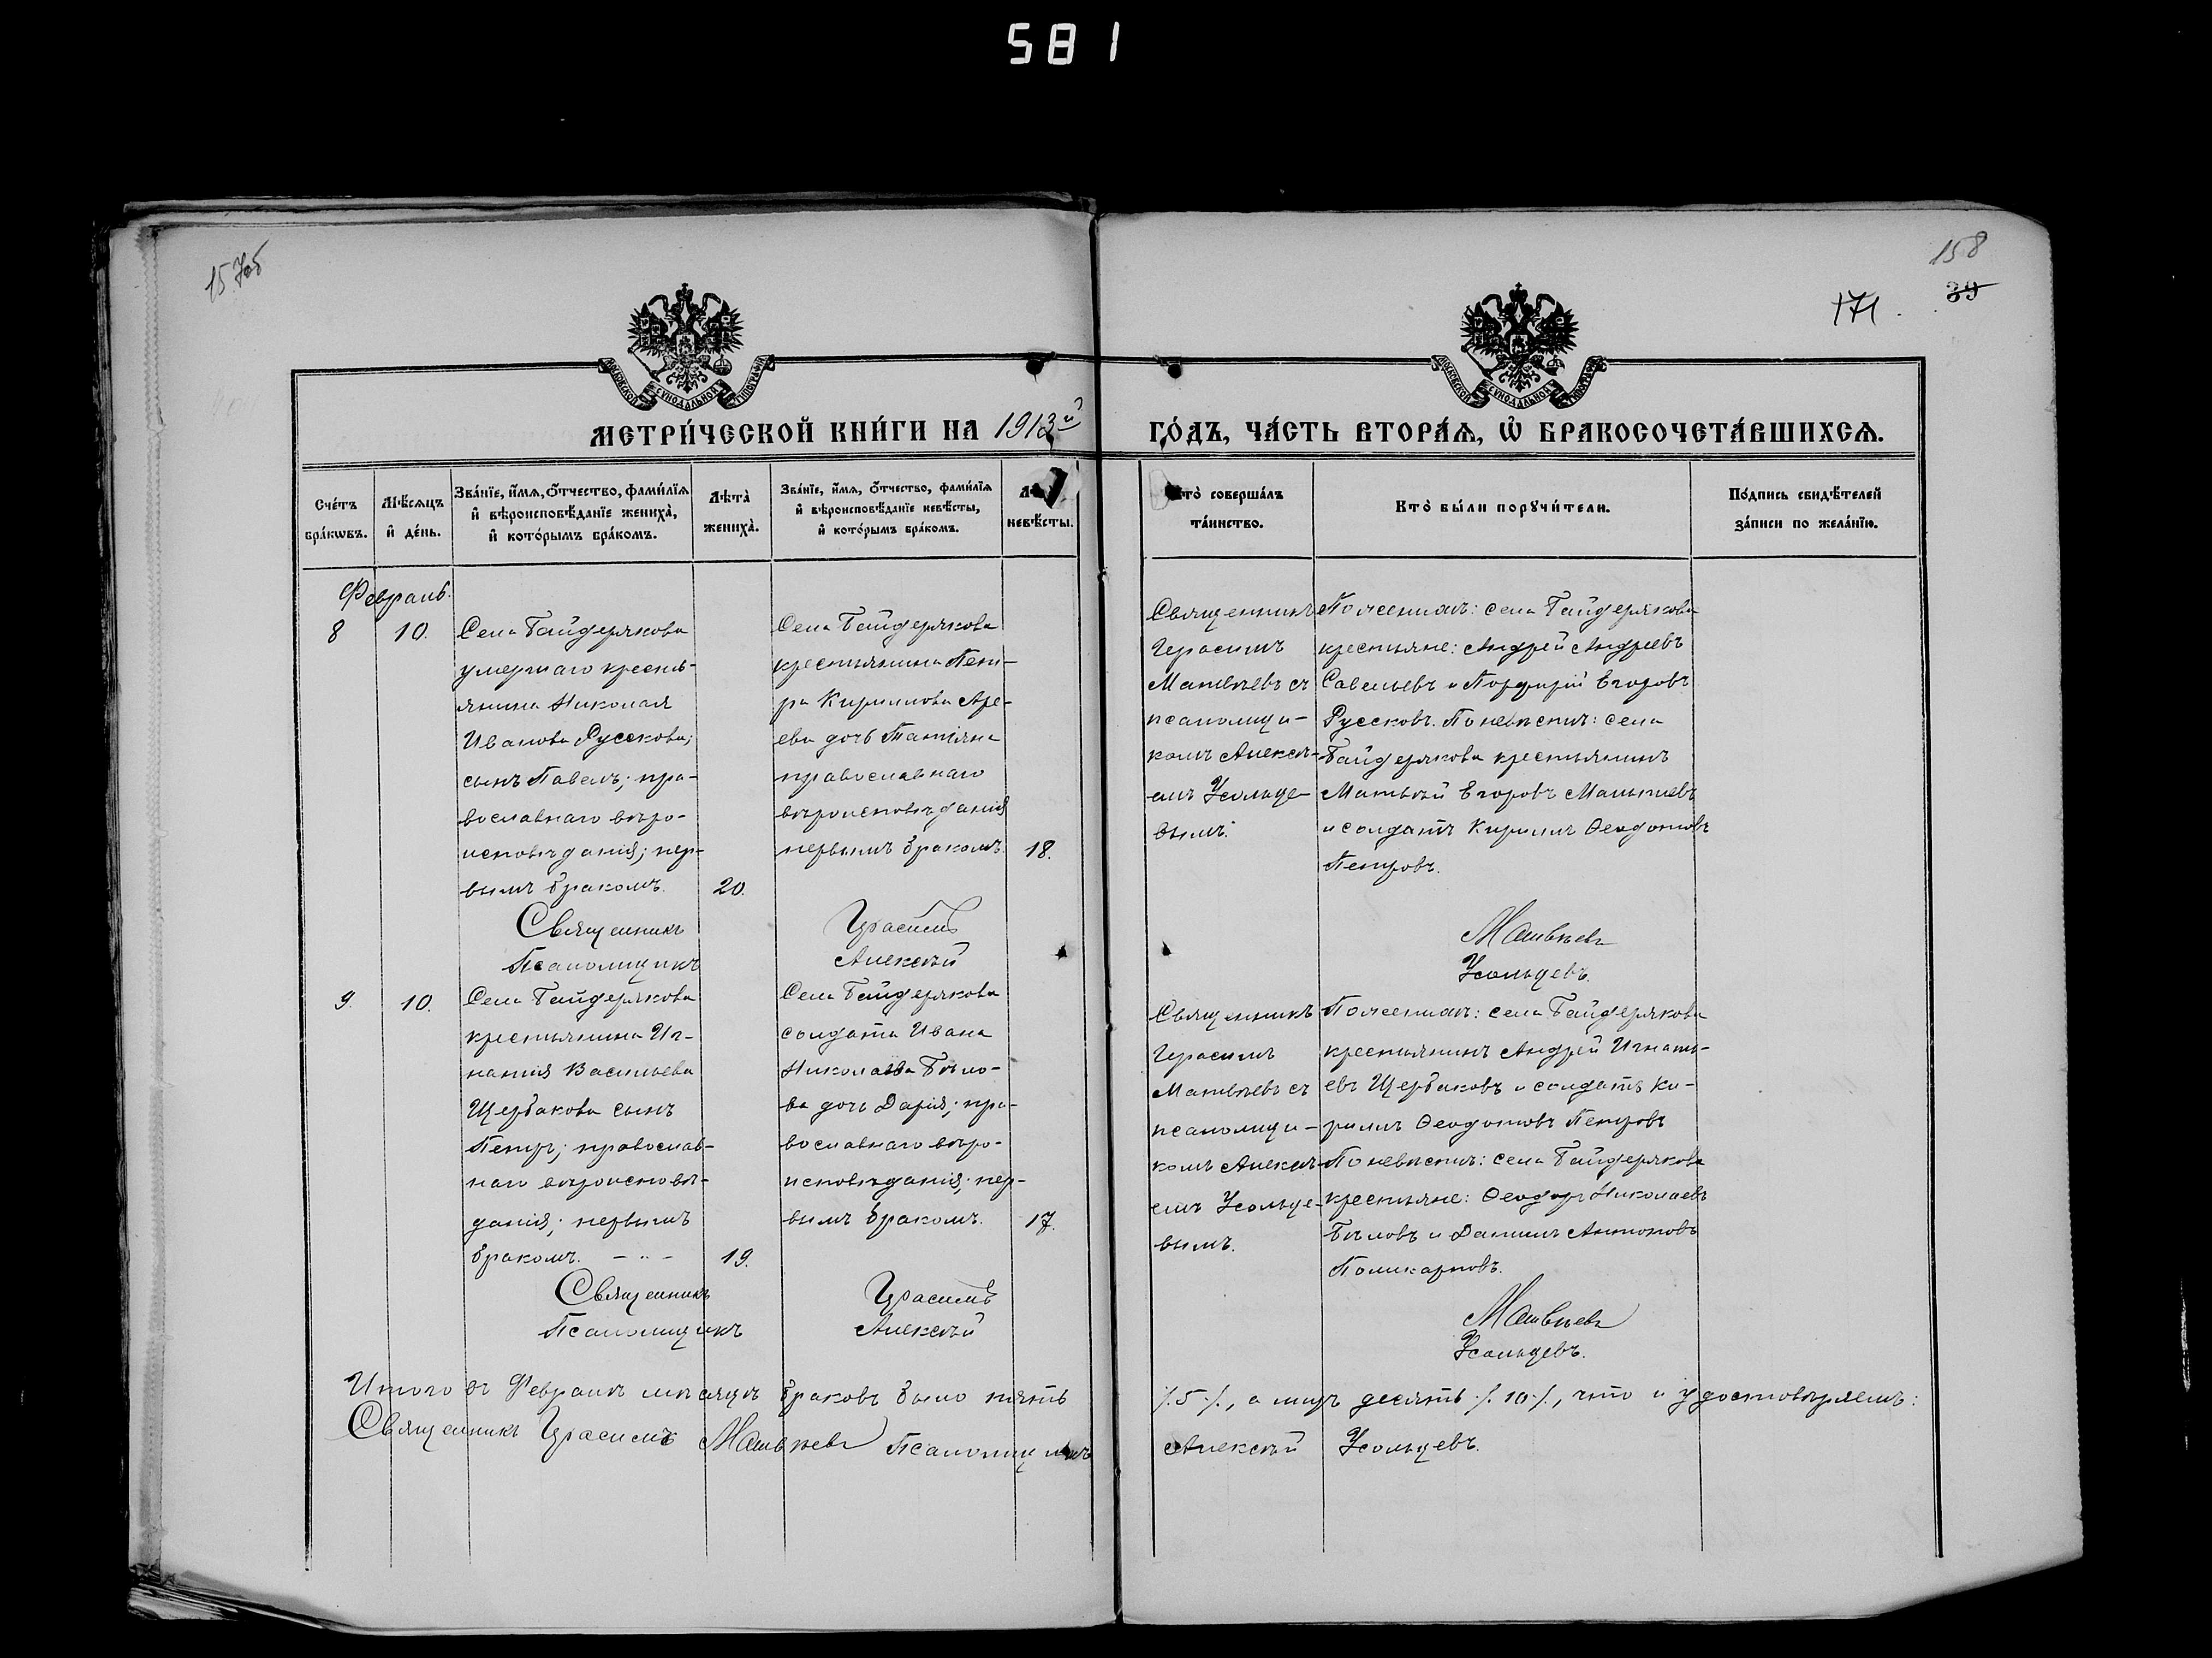 581
157об
158
171
39
МЕТРИ́ЧЕСКОЙ КНИ́ГИ НА 1913й ГО́ДЪ, ЧА́СТЬ ВТОРА́Ѧ, Ѽ БРАКОСОЧЕТА́ВШИХСѦ.
Сче́тъ бра́кѡвъ.
Мѣ́сяцъ и҆ де́нь.
Зва́нїе, и҆́мѧ, ѻ҆́тчество, фами́лїѧ и҆ вѣроисповѣ́данїе жениха̀, и҆ кото́рымъ бра́комъ.
Лѣта̀ жениха̀.
Зва́нїе, и҆́мѧ, ѻ҆́тчество, фами́лїѧ и҆ вѣроисповѣ́данїе невѣ́сты, и҆ кото́рымъ бра́комъ.
невѣ́сты.
Кто̀ соверша́лъ та́инство.
Кто̀ бы́ли порꙋчи́тели.
По́дпись свидѣ́телей за́писи по жела́нїю.
Февраль.
8
10.
Села Байдерякова
умершаго кресть-
янина Николая
Иванова Русскова;
сынъ Павелъ; пра-
вославнаго вѣро-
исповѣданія; пер-
вымъ бракомъ.
20.
Села Байдерякова
крестьянина Пет-
ра Кириллова Аре-
ева дочь Татіяна
православнаго
вѣроисповѣданія
первымъ бракомъ.
18.
Священникъ
Герасимъ
Матвѣевъ съ
псаломщи-
комъ Алексѣ-
емъ Усольце-
вымъ.
По женихѣ: села Байдерякова
крестьяне: Андрей Андреевъ
Савельевъ и Порфирій Егоровъ
Руссковъ. По невѣстѣ: села
Байдерякова крестьянинъ
Матвѣй Егоровъ
и солдатъ Кириллъ Ѳеодотовъ
Петровъ.
Священникъ Герасимъ Матвѣевъ
Псаломщикъ Алексѣй Усольцевъ.
9.
10.
Села Байдерякова
крестьянина Иг-
натія Васильева
Щербакова сынъ
Петръ; православ-
наго вѣроисповѣ-
данія; первымъ
бракомъ. - " -
19.
Села Байдерякова
солдата Ивана
Николаева Бѣло-
ва дочь Дарія; пра-
вославнаго вѣро-
исповѣданія; пер-
вымъ бракомъ.
17.
Священникъ
Герасимъ
Матвѣевъ съ
псаломщи-
комъ Алексѣ-
емъ Усольце-
вымъ.
По женихѣ: села Байдерякова
крестьянинъ Андрей Игнать-
евъ Щербаковъ и солдатъ Ки-
риллъ Ѳеодотовъ Петровъ
По невѣстѣ: села Байдерякова
крестьяне: Ѳеодоръ Николаевъ
Бѣловъ и Даніилъ Антоновъ
Поликарповъ.
Священникъ Герасимъ Матвѣевъ
Псаломщикъ Алексѣй Усольцевъ.
Итого въ Февралѣ мѣсяцѣ браковъ было пять /.5./, а лицъ десять /.10./, что и удостовѣряемъ:
Священникъ Герасимъ Матвѣевъ Псаломщикъ Алексѣй Усольцевъ.